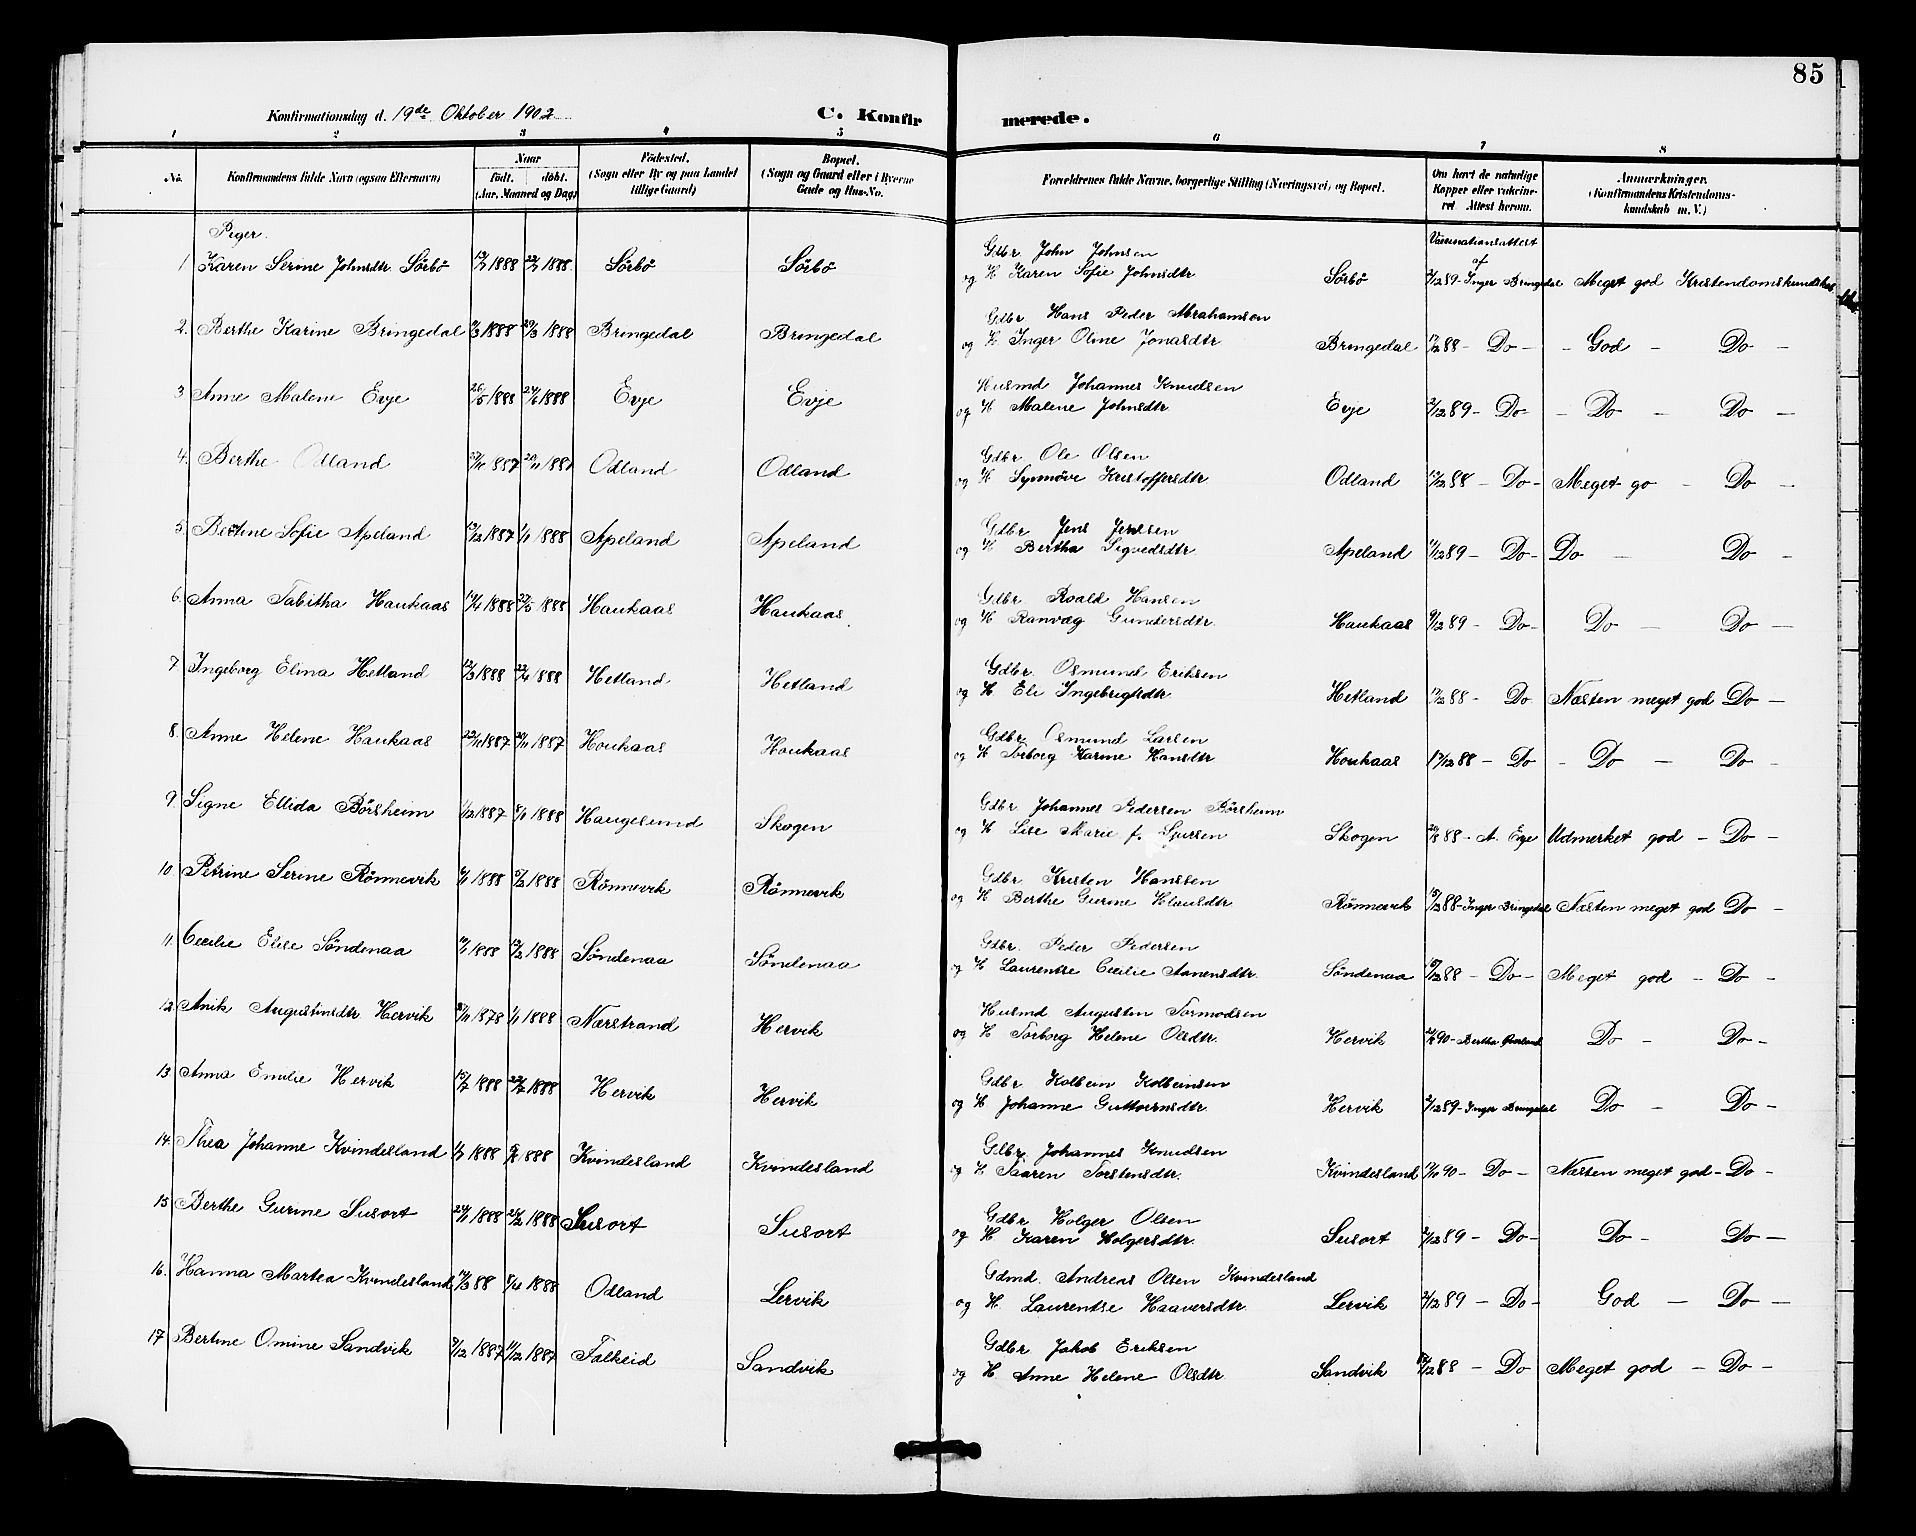 85
Konfirmationsdag d. 19de Oktober 1902
C. Konfirmerede.
1 2 3 4 5 6 7 8
No. Konfirmandens fulde Navn (ogsaa Efternavn) Naar födt. döbt. (Aar, Maaned og Dag) Födested. (Sogn eller By og paa Landet tillige Gaard) Bopæl. (Sogn og Gaard eller i Byerne Gade og Hus-No. Forældrenes fulde Navne, borgerlige Stilling (Næringsvei) og Bopæl. Om havt de naturlige Kopper eller vakcineret Attest herom. Anmærkninger. (Konfirmandens Kristendomskundskab m. V.)
Piger.
1 Karen Serine Johnsdtr Sörbö 1888 1888 Sörbö Sörbö Gdbr John Johnsen og H Karen Sofie Johnsdtr Sörbö Vaccinationsattest af 2/12 89 - Inger Bringedal Meget god Kristendomskundskab
2. Berthe Karine Bringedal 1888 29/3 1888 Bringedal Bringedal Gdbr Hans Peder Abrahamsen og H Inger Oline Jonasdtr Bringedal 17/12 88 - Do - - God - Do -
3. Anne Malene Evje 26/5 1888 24/6 1888 Evje Evje Husmd Johannes Knudsen og H Malene Johnsdtr Evje 2/12 89 - Do - - Do - Do -
4. Berthe Odland 1887 20/11 1887 Odland Odland Gdbr Ole Olsen og H Synnöve Kristoffersdtr Odland 17/12 88 - Do - Meget go - Do -
5. Bertine Sofie Apeland 12/12 1887 1/1 1888 Apeland Apeland Gdbr Jens Jensen og H Bertha Sigvedsdtr Apeland 12 89 - Do - Do - Do -
6. Anna Tabitha Haukaas 1888 27/5 1888 Haukaas Haukaas Gdbr. Roald Hansen og H Ranvæg Gundersdtr. Haukaas 9/12 89 - Do - Do - Do -
7. Ingeborg Elina Hetland 12/3 1888 22/4 1888 Hetland Hetland Gdbr. Osmund Eriksen og H Eli Ingebrigtsdtr. Hetland 17/12 88 - Do Næsten meget god Do -
8. Anne Helene Haukaas 1887 1887 Houkaas Houkaas Gdbr Osmund Larsen og H Torborg Karine Hansdtr Houkaas 17/12 88 - Do - Do - Do -
9. Signe Ellida Börsheim 1/12 1887 8/1 1888 Haugesund Skogen Gdbr Johannes Pedersen Börsheim og H Lise Marie f. Skogen 88 - A. Evje Udmerket god - Do -
10. Petrine Serine Rönnevik 1888 1888 Rönnevik Rönnevik Gdbr Kristen Hansen og H Berthe Gurine Klausdtr Rönnevik 12 88 - Inger Bringedal Næsten meget god Do -
11. Cecilie Elise Söndenaa 1888 12/2 1888 Söndenaa Söndenaa Gdbr. Peder Pedersen og H Laurentse Cecilie Aanensdtr. Söndenaa 12 88 - Do - Meget god - Do -
12. Anik Augustinsdtr Hervik 1878 1/1 1888 Nærstrand Hervik Husmd Augustin Tormodsen og H Torborg Helene Olsdtr. Hervik 90 - Bertha Do - Do -
13. Anna Emilie Hervik 1888 1888 Hervik Hervik Gdbr Kolbein Kolbeinsen og H Johanne Guttormsdtr. Hervik 2/12 89 - Inger Bringedal Do - Do -
14. Thea Johanne Kvindesland 1888 1888 Kvindesland Kvindesland Gdbr Johannes Knudsen og H Taaren Torstensdtr. Kvindesland 90 - Do - Næsten meget god - Do -
15 Berthe Gurine Susort 1888 26/2 1888 Susort Susort Gdbr Holger Olsen og H Karen Holgersdtr. Susort 2/12 89 - Do - Do - Do -
16. Hanna Martea Kvindesland 88 1888 Odland Lervik Gdmd. Andreas Olsen Kvindesland og H. Laurentse Haaversdtr Lervik 2/12 89 - Do - God - Do -
17 Bertine Omine Sandvik 12 1887 11/12 1887 Falkeid Sandvik Gdbr Jakob Eriksen og H Anne Helene Olsdtr Sandvik 12 88 - Do Meget god - Do -